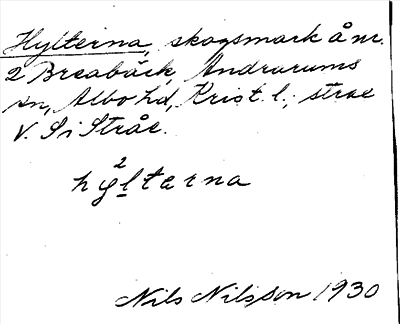 Hylterna, skogsmark å nr.
2 Breabäck, Andrarums
sn, Albo hd, Krist. l.; strax
V. S i Stråe.
2
hylterna
Nils Nilsson 1930